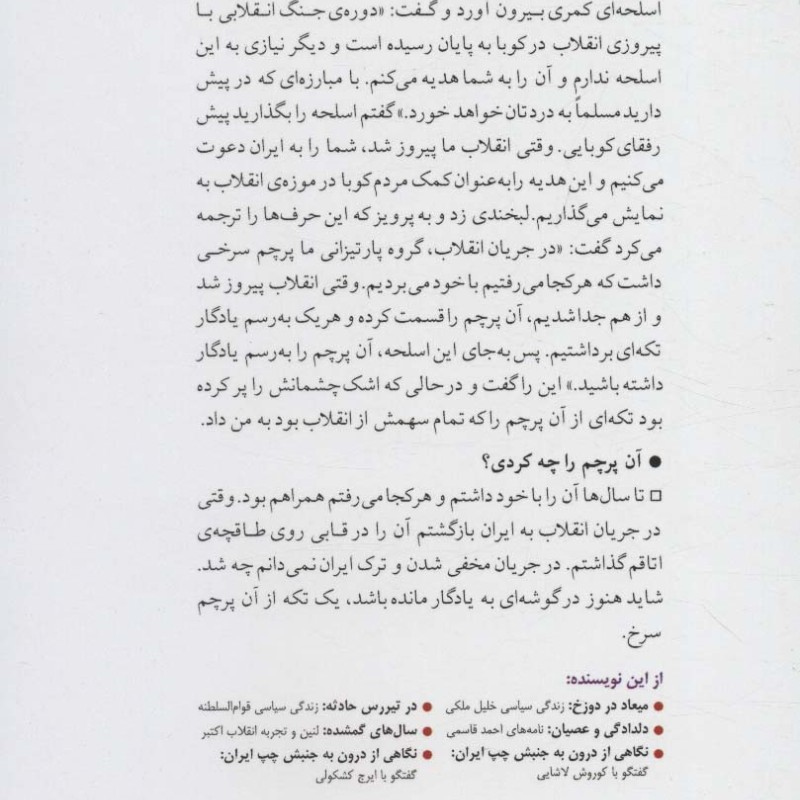 اسلحه‌ای کمری بیرون آورد و گفت: «دوره‌ی جنگ انقلابی با
پیروزی انقلاب در کوبا به پایان رسیده است و دیگر نیازی به این
اسلحه ندارم و آن را به شما هدیه می‌کنم. با مبارزه‌ای که در پیش
دارید مسلماً به دردتان خواهد خورد.» گفتم اسلحه را بگذارید پیش
رفقای کوبایی. وقتی انقلاب ما پیروز شد، شما را به ایران دعوت
می‌کنیم و این هدیه را به‌عنوان کمک مردم کوبا در موزه‌ی انقلاب به
نمایش می‌گذاریم. لبخندی زد و به پرویز که این حرف‌ها را ترجمه
می‌کرد گفت: «در جریان انقلاب، گروه پارتیزانی ما پرچم سرخی
داشت که هرکجا می‌رفتیم با خود می‌بردیم. وقتی انقلاب پیروز شد
و از هم جدا شدیم، آن پرچم را قسمت کرده و هریک به‌رسم یادگار
تکه‌ای برداشتیم. پس به‌جای این اسلحه، آن پرچم را به‌رسم یادگار
داشته باشید.» این را گفت و درحالی که اشک چشمانش را پر کرده
بود تکه‌ای از آن پرچم را که تمام سهمش از انقلاب بود به من داد.
● آن پرچم را چه کردی؟
□ تا سال‌ها آن را با خود داشتم و هرکجا می‌رفتم همراهم بود. وقتی
در جریان انقلاب به ایران بازگشتم آن را در قابی روی طاقچه‌ی
اتاقم گذاشتم. در جریان مخفی شدن و ترک ایران نمی‌دانم چه شد.
شاید هنوز در گوشه‌ای به یادگار مانده باشد، یک تکه از آن پرچم
سرخ.
از این نویسنده:
● میعاد در دوزخ: زندگی سیاسی خلیل ملکی
● در تیررس حادثه: زندگی سیاسی قوام‌السلطنه
● دلدادگی و عصیان: نامه‌های احمد قاسمی
● سال‌های گمشده: لنین و تجربه انقلاب اکتبر
● نگاهی از درون به جنبش چپ ایران:
گفتگو با کوروش لاشایی
● نگاهی از درون به جنبش چپ ایران:
گفتگو با ایرج کشکولی